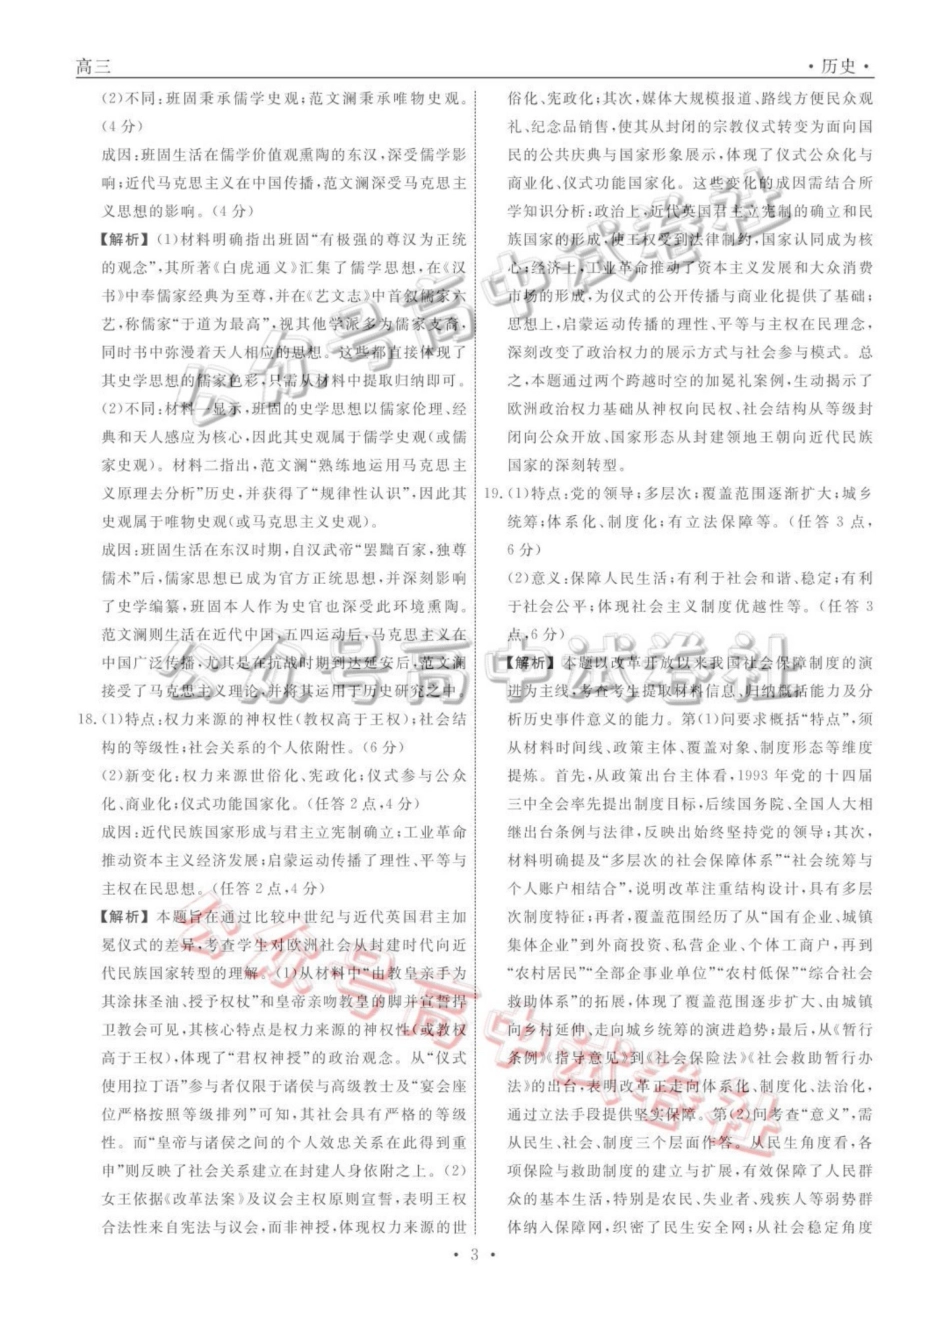 高三
·历史·
(2)不同:班固秉承儒学史观;范文澜秉承唯物史观。
(4分)
成因:班固生活在儒学价值观熏陶的东汉,深受儒学影
响;近代马克思主义在中国传播,范文澜深受马克思主
义思想的影响。(4分)
【解析】(1)材料明确指出班固“有极强的尊汉为正统
的观念”,其所著《白虎通义》汇集了儒学思想,在《汉
书》中奉儒家经典为至尊,并在《艺文志》中首叙儒家六
艺,称儒家“于道为最高”,视其他学派多为儒家支裔,
同时书中弥漫着天人相应的思想。这些都直接体现了
其史学思想的儒家色彩,只需从材料中提取归纳即可。
(2)不同:材料一显示,班固的史学思想以儒家伦理、经
典和天人感应为核心,因此其史观属于儒学史观(或儒
家史观)。材料二指出,范文澜“熟练地运用马克思主
义原理去分析”历史,并获得了“规律性认识”,因此其
史观属于唯物史观(或马克思主义史观)。
成因:班固生活在东汉时期,自汉武帝“罢黜百家,独尊
儒术”后,儒家思想已成为官方正统思想,并深刻影响
了史学编纂,班固本人作为史官也深受此环境熏陶。
范文澜则生活在近代中国,五四运动后,马克思主义在
中国广泛传播,尤其是在抗战时期到达延安后,范文澜
接受了马克思主义理论,并将其运用于历史研究之中。
18.(1)特点:权力来源的神权性(教权高于王权);社会结
构的等级性;社会关系的个人依附性。(6分)
(2)新变化:权力来源世俗化、宪政化;仪式参与公众
化、商业化;仪式功能国家化。(任答2点,4分)
成因:近代民族国家形成与君主立宪制确立;工业革命
推动资本主义经济发展;启蒙运动传播了理性、平等与
主权在民思想。(任答2点,4分)
【解析】本题旨在通过比较中世纪与近代英国君主加
冕仪式的差异,考查学生对欧洲社会从封建时代向近
代民族国家转型的理解。(1)从材料中“由教皇亲手为
其涂抹圣油、授予权杖”和皇帝亲吻教皇的脚并宣誓捍
卫教会可见,其核心特点是权力来源的神权性(或教权
高于王权),体现了“君权神授”的政治观念。从“仪式
使用拉丁语”参与者仅限于诸侯与高级教士及“宴会座
位严格按照等级排列”可知,其社会具有严格的等级
性。而“皇帝与诸侯之间的个人效忠关系在此得到重
申”则反映了社会关系建立在封建人身依附之上。(2)
女王依据《改革法案》及议会主权原则宣誓,表明王权
合法性来自宪法与议会,而非神授,体现权力来源的世
俗化、宪政化;其次,媒体大规模报道、路线方便民众观
礼、纪念品销售,使其从封闭的宗教仪式转变为面向国
民的公共庆典与国家形象展示,体现了仪式公众化与
商业化、仪式功能国家化。这些变化的成因需结合所
学知识分析:政治上,近代英国君主立宪制的确立和民
族国家的形成,使王权受到法律制约,国家认同成为核
心;经济上,工业革命推动了资本主义发展和大众消费
市场的形成,为仪式的公开传播与商业化提供了基础;
思想上,启蒙运动传播的理性、平等与主权在民理念,
深刻改变了政治权力的展示方式与社会参与模式。总
之,本题通过两个跨越时空的加冕礼案例,生动揭示了
欧洲政治权力基础从神权向民权、社会结构从等级封
闭向公众开放、国家形态从封建领地王朝向近代民族
国家的深刻转型。
19.(1)特点:党的领导;多层次;覆盖范围逐渐扩大;城乡
统筹;体系化、制度化;有立法保障等。(任答3点,
6分)
(2)意义:保障人民生活;有利于社会和谐、稳定;有利
于社会公平;体现社会主义制度优越性等。(任答3
点,6分)
【解析】本题以改革开放以来我国社会保障制度的演
进为主线,考查考生提取材料信息、归纳概括能力及分
析历史事件意义的能力。第(1)问要求概括“特点”,须
从材料时间线、政策主体、覆盖对象、制度形态等维度
提炼。首先,从政策出台主体看,1993年党的十四届
三中全会率先提出制度目标,后续国务院、全国人大相
继出台条例与法律,反映出始终坚持党的领导;其次,
材料明确提及“多层次的社会保障体系”“社会统筹与
个人账户相结合”,说明改革注重结构设计,具有多层
次制度特征;再者,覆盖范围经历了从“国有企业、城镇
集体企业”到外商投资、私营企业、个体工商户,再到
“农村居民”“全部企事业单位”“农村低保”“综合社会
救助体系”的拓展,体现了覆盖范围逐步扩大、由城镇
向乡村延伸、走向城乡统筹的演进趋势;最后,从《暂行
条例》《指导意见》到《社会保险法》《社会救助暂行办
法》的出台,表明改革正走向体系化、制度化、法治化,
通过立法手段提供坚实保障。第(2)问考查“意义”,需
从民生、社会、制度三个层面作答。从民生角度看,各
项保险与救助制度的建立与扩展,有效保障了人民群
众的基本生活,特别是农民、失业者、残疾人等弱势群
体纳入保障网,织密了民生安全网;从社会稳定角度
·3·
公众号高中试卷社
公众号高中试卷社
公众号高中试卷社